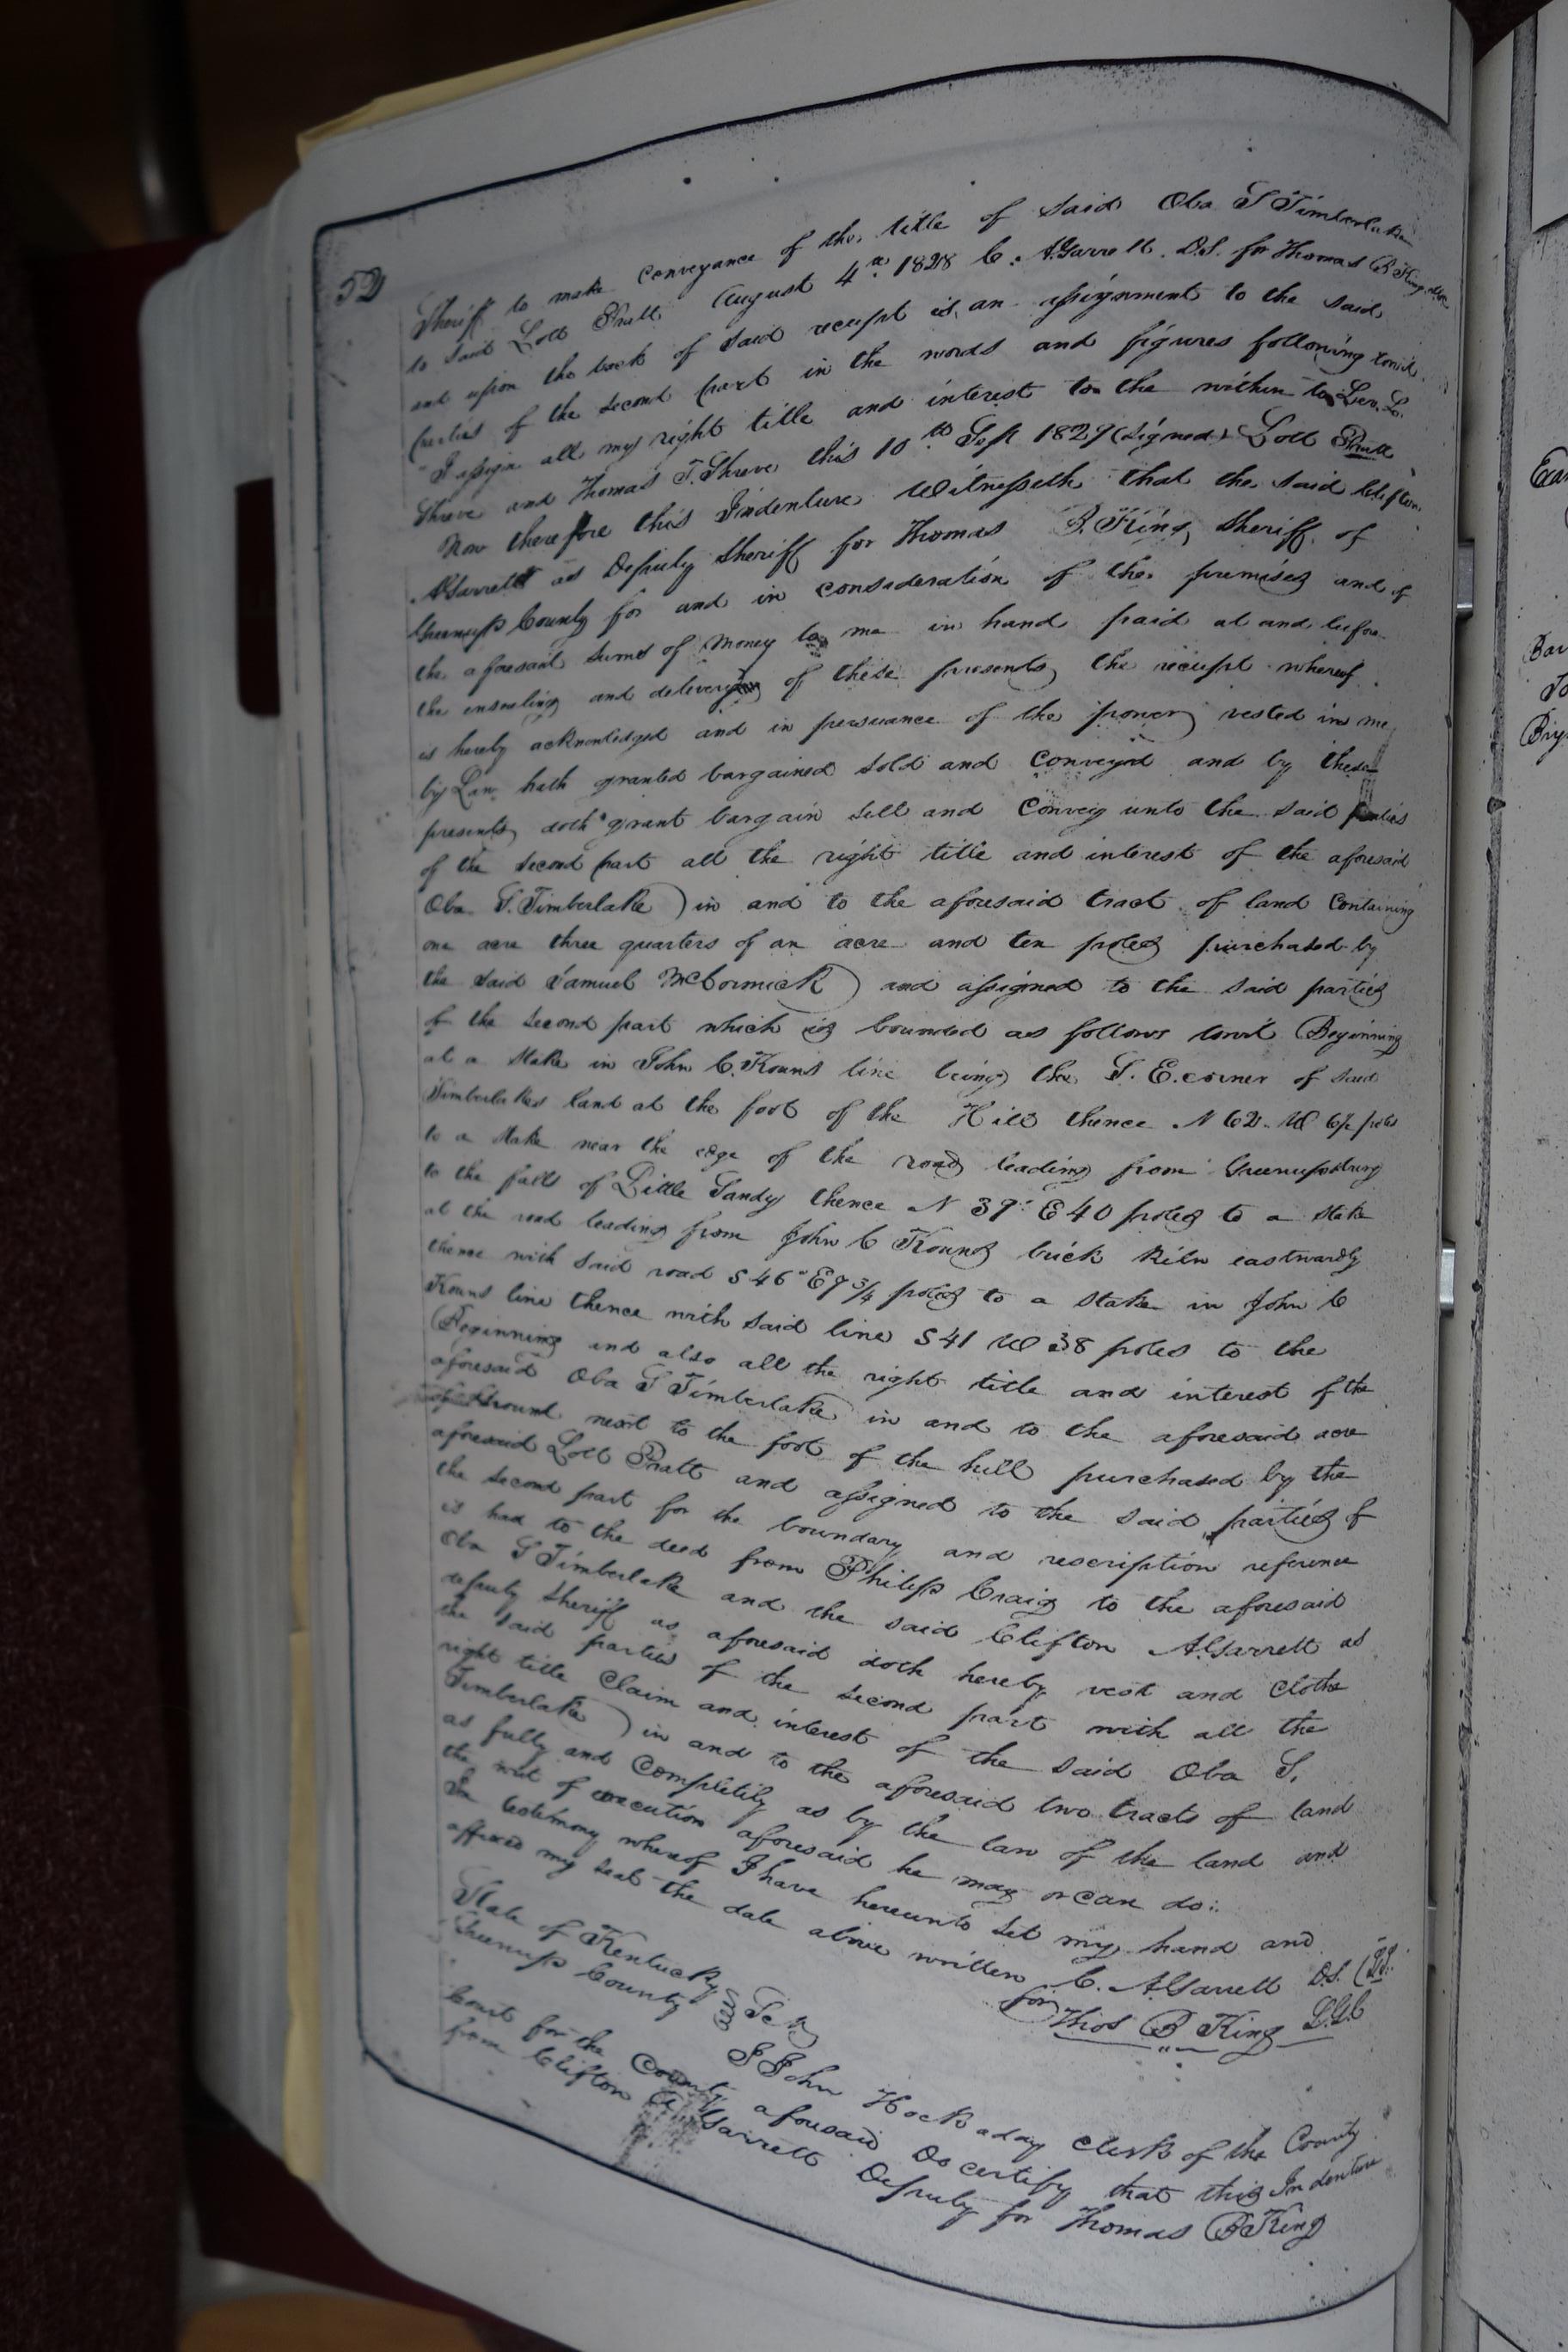 52
Sheriff to make conveyance of the title of said Oba S Timberlake
to said Lott Pratt August 4th 1828 C. A Garrett. D.S. for Thomas B King
and upon the back of said receipt is an assignment to the said
parties of the second part in the words and figures following towit.
"I assign all my right title and interest to the within to Lev. L.
Shreve and Thomas T. Shreve this 10th Sept 1829 (signed) Lott Pratt
Now therefore this Indenture Witnesseth that the said Clifton
A Garrett as Deputy Sheriff for Thomas B. King, Sheriff of
Greenup County for and in consideration of the premises and of
the aforesaid sums of money to me in hand paid at and before
the ensealing and delivery of these presents the receipt whereof
is hereby acknowledged and in persuance of the power vested in me
by Law hath granted bargained sold and conveyed and by these
presents doth grant bargain sell and Convey unto the said parties
of the second part all the right title and interest of the aforesaid
Oba S. Timberlake) in and to the aforesaid tract of land Containing
one acre three quarters of an acre and ten poles purchased by
the said Samuel McCormick) and assigned to the said parties
of the second part which is bounded as follows towit Beginning
at a Stake in John C. Kouns line being the S. E. corner of said
Timberlakes land at the foot of the Hill thence N 62. W poles
to a Stake near the edge of the road leading from Greenupsburg
to the falls of Little Sandy thence N 39° E 40 poles to a stake
at the road leading from John C Kouns brick kiln eastwardly
thence with said road S 46° E 9 3/4 poles to a stake in John C
Kouns line thence with said line S 41 W 38 poles to the
Beginning and also all the right title and interest of the
aforesaid Oba S Timberlake) in and to the aforesaid acre
of ground next to the foot of the hill purchased by the
aforesaid Lott Pratt and assigned to the said parties of
the second part for the boundary and rescription reference
is had to the deed from Philip Craig to the aforesaid
Oba S Timberlake and the said Clifton A Garrett as
deputy Sheriff as aforesaid doth hereby vest and clothe
the said parties of the second part with all the
right title Claim and interest of the said Oba S.
Timberlake) in and to the aforesaid two tracts of land
as fully and completily as by the law of the land and
the writ of execution aforesaid he may or can do:
In testimony whereof I have hereunto set my hand and
affixed my seal the date above written C. A Garrett D.S.
for Thos B King S.G.C
State of Kentucky
Greenup County Sct
I John Hockaday Clerk of the County
Court for the County aforesaid Do certify that this Indenture
from Clifton A Garrett Deputy for Thomas B King